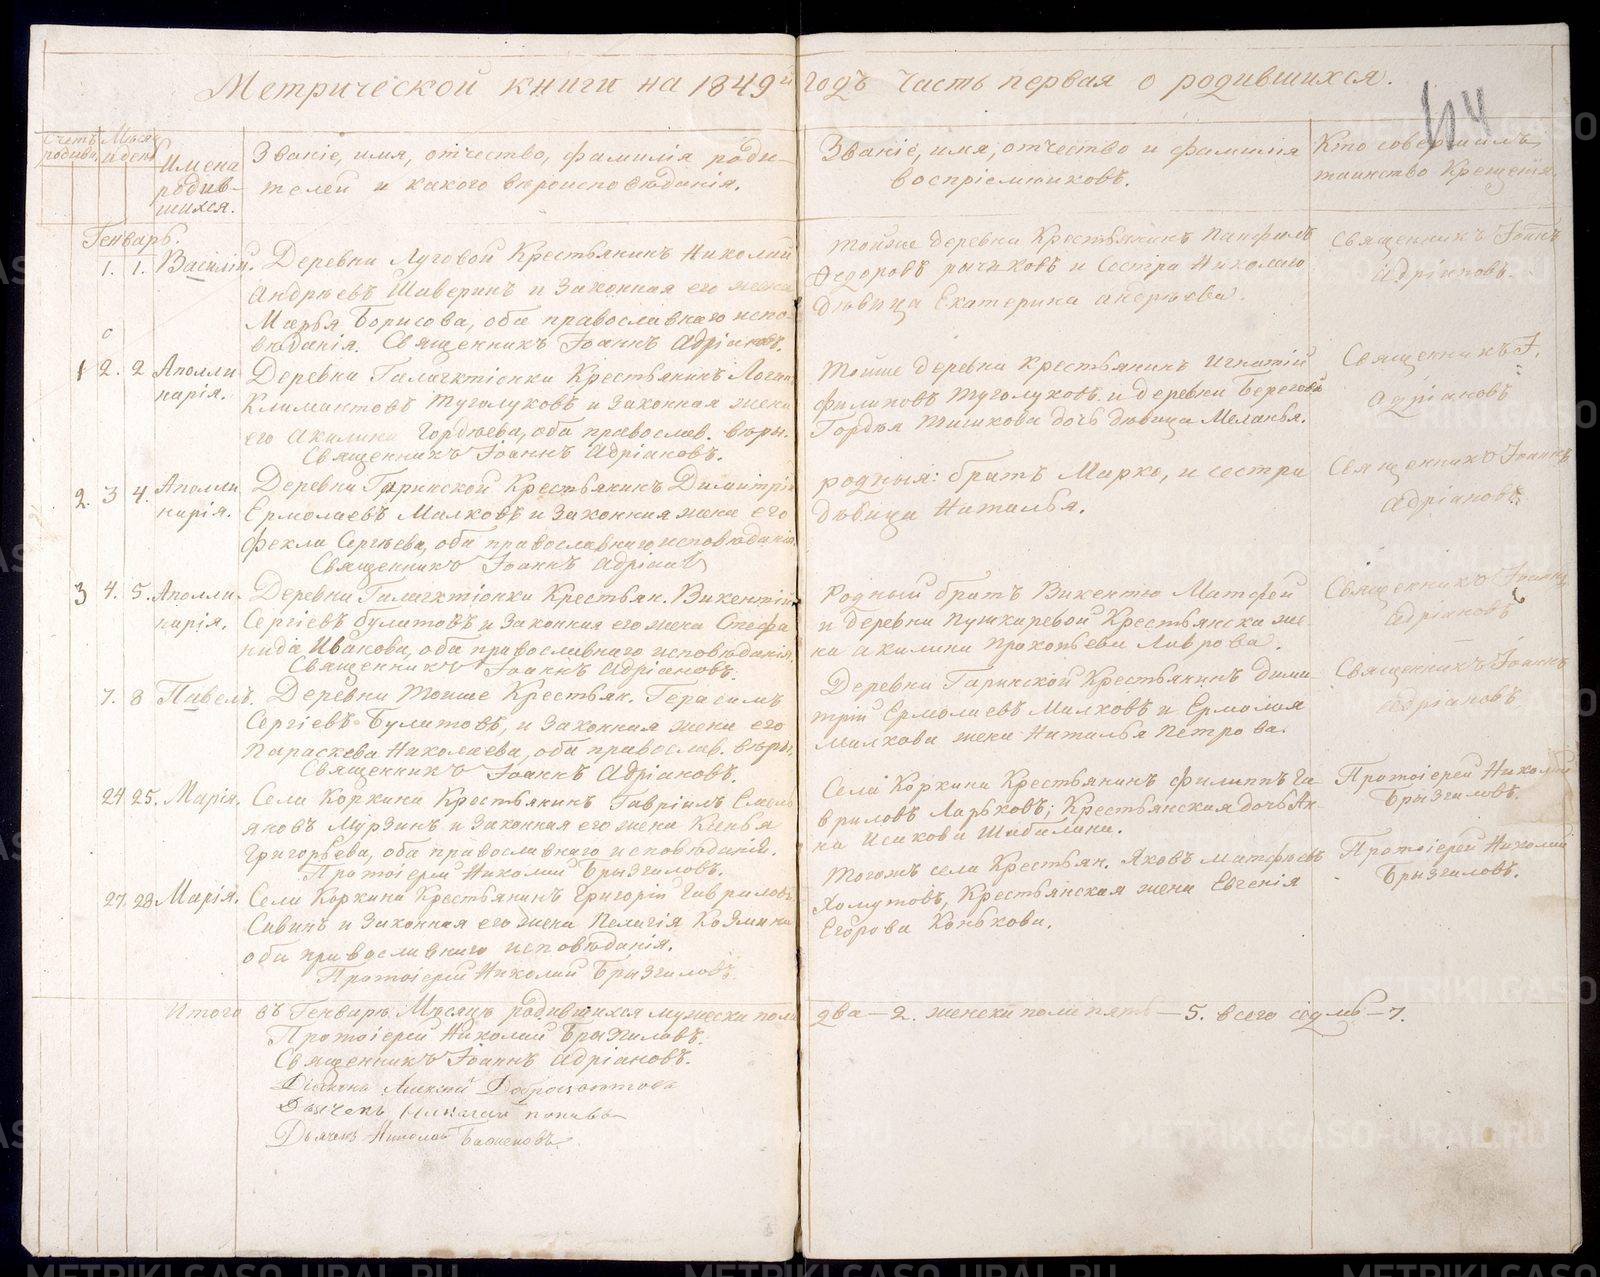 Метрической книги на 1849й годъ Часть первая о родившихся.
114
Счетъ родивш.
Мѣся. и день
Имена родив-
шихся.
Званіе, имя, отчество, фамилія роди-
телей и какого вѣроисповѣданія.
Званіе, имя, отчество и фамилія
воспріемниковъ.
Кто совершалъ
таинство Крещенія
Генварь.
1. 1. Василій.
Деревни Луговой Крестьянинъ Николай
Андрѣевъ Шаверинъ и Законная его жена
Марья Борисова, оба православнаго испо-
вѣданія. Священникъ Іоаннъ Адріановъ.
тойже деревни Крестьянинъ Панфилъ
Ѳедоровъ рычковъ и Сестра Николаю
дѣвица Екатерина андрѣева.
Священникъ Іоаннъ
Адріановъ.
1 2. 2 Аполли
нарія.
Деревни Галактіонки Крестьянинъ Логин
Климантовъ Туголуковъ и Законная жена
его Акилина Гордѣева, оба православ. вѣры.
Священникъ Іоаннъ Адріановъ.
Тойже деревни крестьянинъ Игнатій
филиповъ Туголуковъ. и деревни Береговой
Гордѣя Тишкова дочь дѣвица Меланья.
Священникъ І.
Адріановъ
2. 3 4. Аполли
нарія.
Деревни Гаринской Крестьянинъ Димитрій
Ермолаевъ Малковъ и Законная жена его
Фекла Сергѣева, оба православнаго исповѣданія.
Священникъ Іоаннъ Адріанов
родныя: братъ Марко, и сестра
дѣвица Наталья.
Священникъ Іоаннъ
Адріановъ.
3 4. 5. Аполли-
нарія.
Деревни Галактіонки Крестьян. Викентій
Сергіевъ булатовъ и Законная его жена Стефа
нида Иванова, оба православнаго исповѣданія.
Священникъ Іоаннъ Адріановъ.
Родный братъ Викентію Матфей
и деревни Пушкаревой Крестьянска же-
на акилина Прокопьева Лаврова.
Священникъ Іоаннъ
Адріановъ
7. 8 Павелъ.
Деревни тойже Крестьян. Герасимъ
Сергіевъ Булатовъ, и Законная жена его
Параскева Николаева, оба православ. вѣры.
Священникъ Іоаннъ Адріановъ.
Деревни Гаринской Крестьянинъ Дими-
трій Ермолаевъ Малковъ и Ермолая
Малкова жена Наталья Петрова.
Священникъ Іоаннъ
Адріановъ
24 25. Марія.
Села Коркина Крестьянинъ Гавріилъ Емель
яновъ Мурзинъ и Законная его жена Ксенья
Григорьева, оба православнаго исповѣданія.
Протоіерей Николай Брызгаловъ.
Села Коркина Крестьянинъ филиппъ Га-
вриловъ Ларьковъ; Крестьянская дочь Ан-
на Исакова Шабалина.
Протоіерей Николай
Брызгаловъ
27. 28 Марія.
Села Коркина Крестьянинъ Григорій Гавриловъ
Савинъ и Законная его жена Пелагія Козмина
оба православнаго исповѣданія.
Протоіерей Николай Брызгаловъ.
Тогожъ села Крестьян. Яковъ Матфѣевъ
Хомутовъ, Крестьянская жена Евгенія
Егорова Конькова.
Протоіерей Николай
Брызгаловъ.
Итого въ Генварѣ Мѣсяцѣ родившихся мужеска пола два - 2. женска пола пять - 5. всего седмь - 7.
Протоіерей Николай Брызгаловъ.
Священникъ Іоаннъ Адріановъ.
Діаконъ Алексій
Дьячекъ Николай поповъ
Дьячекъ Николай Баженовъ.
METRIKI.GASO-URAL.RU